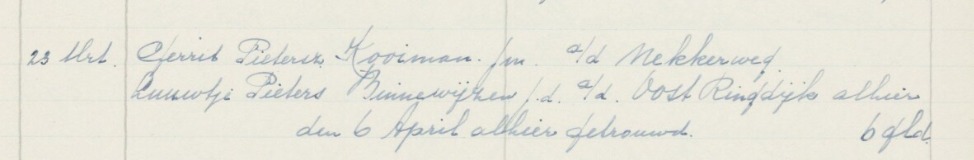 23 Mrt. Gerrit Pietersz. Kooiman. jm. a/d Nekkerweg
Luuwtje Pieters Binnewijzen j.d. a/d. Oost Ringdijk alhier
den 6 April alhier getrouwd. 6 gld.